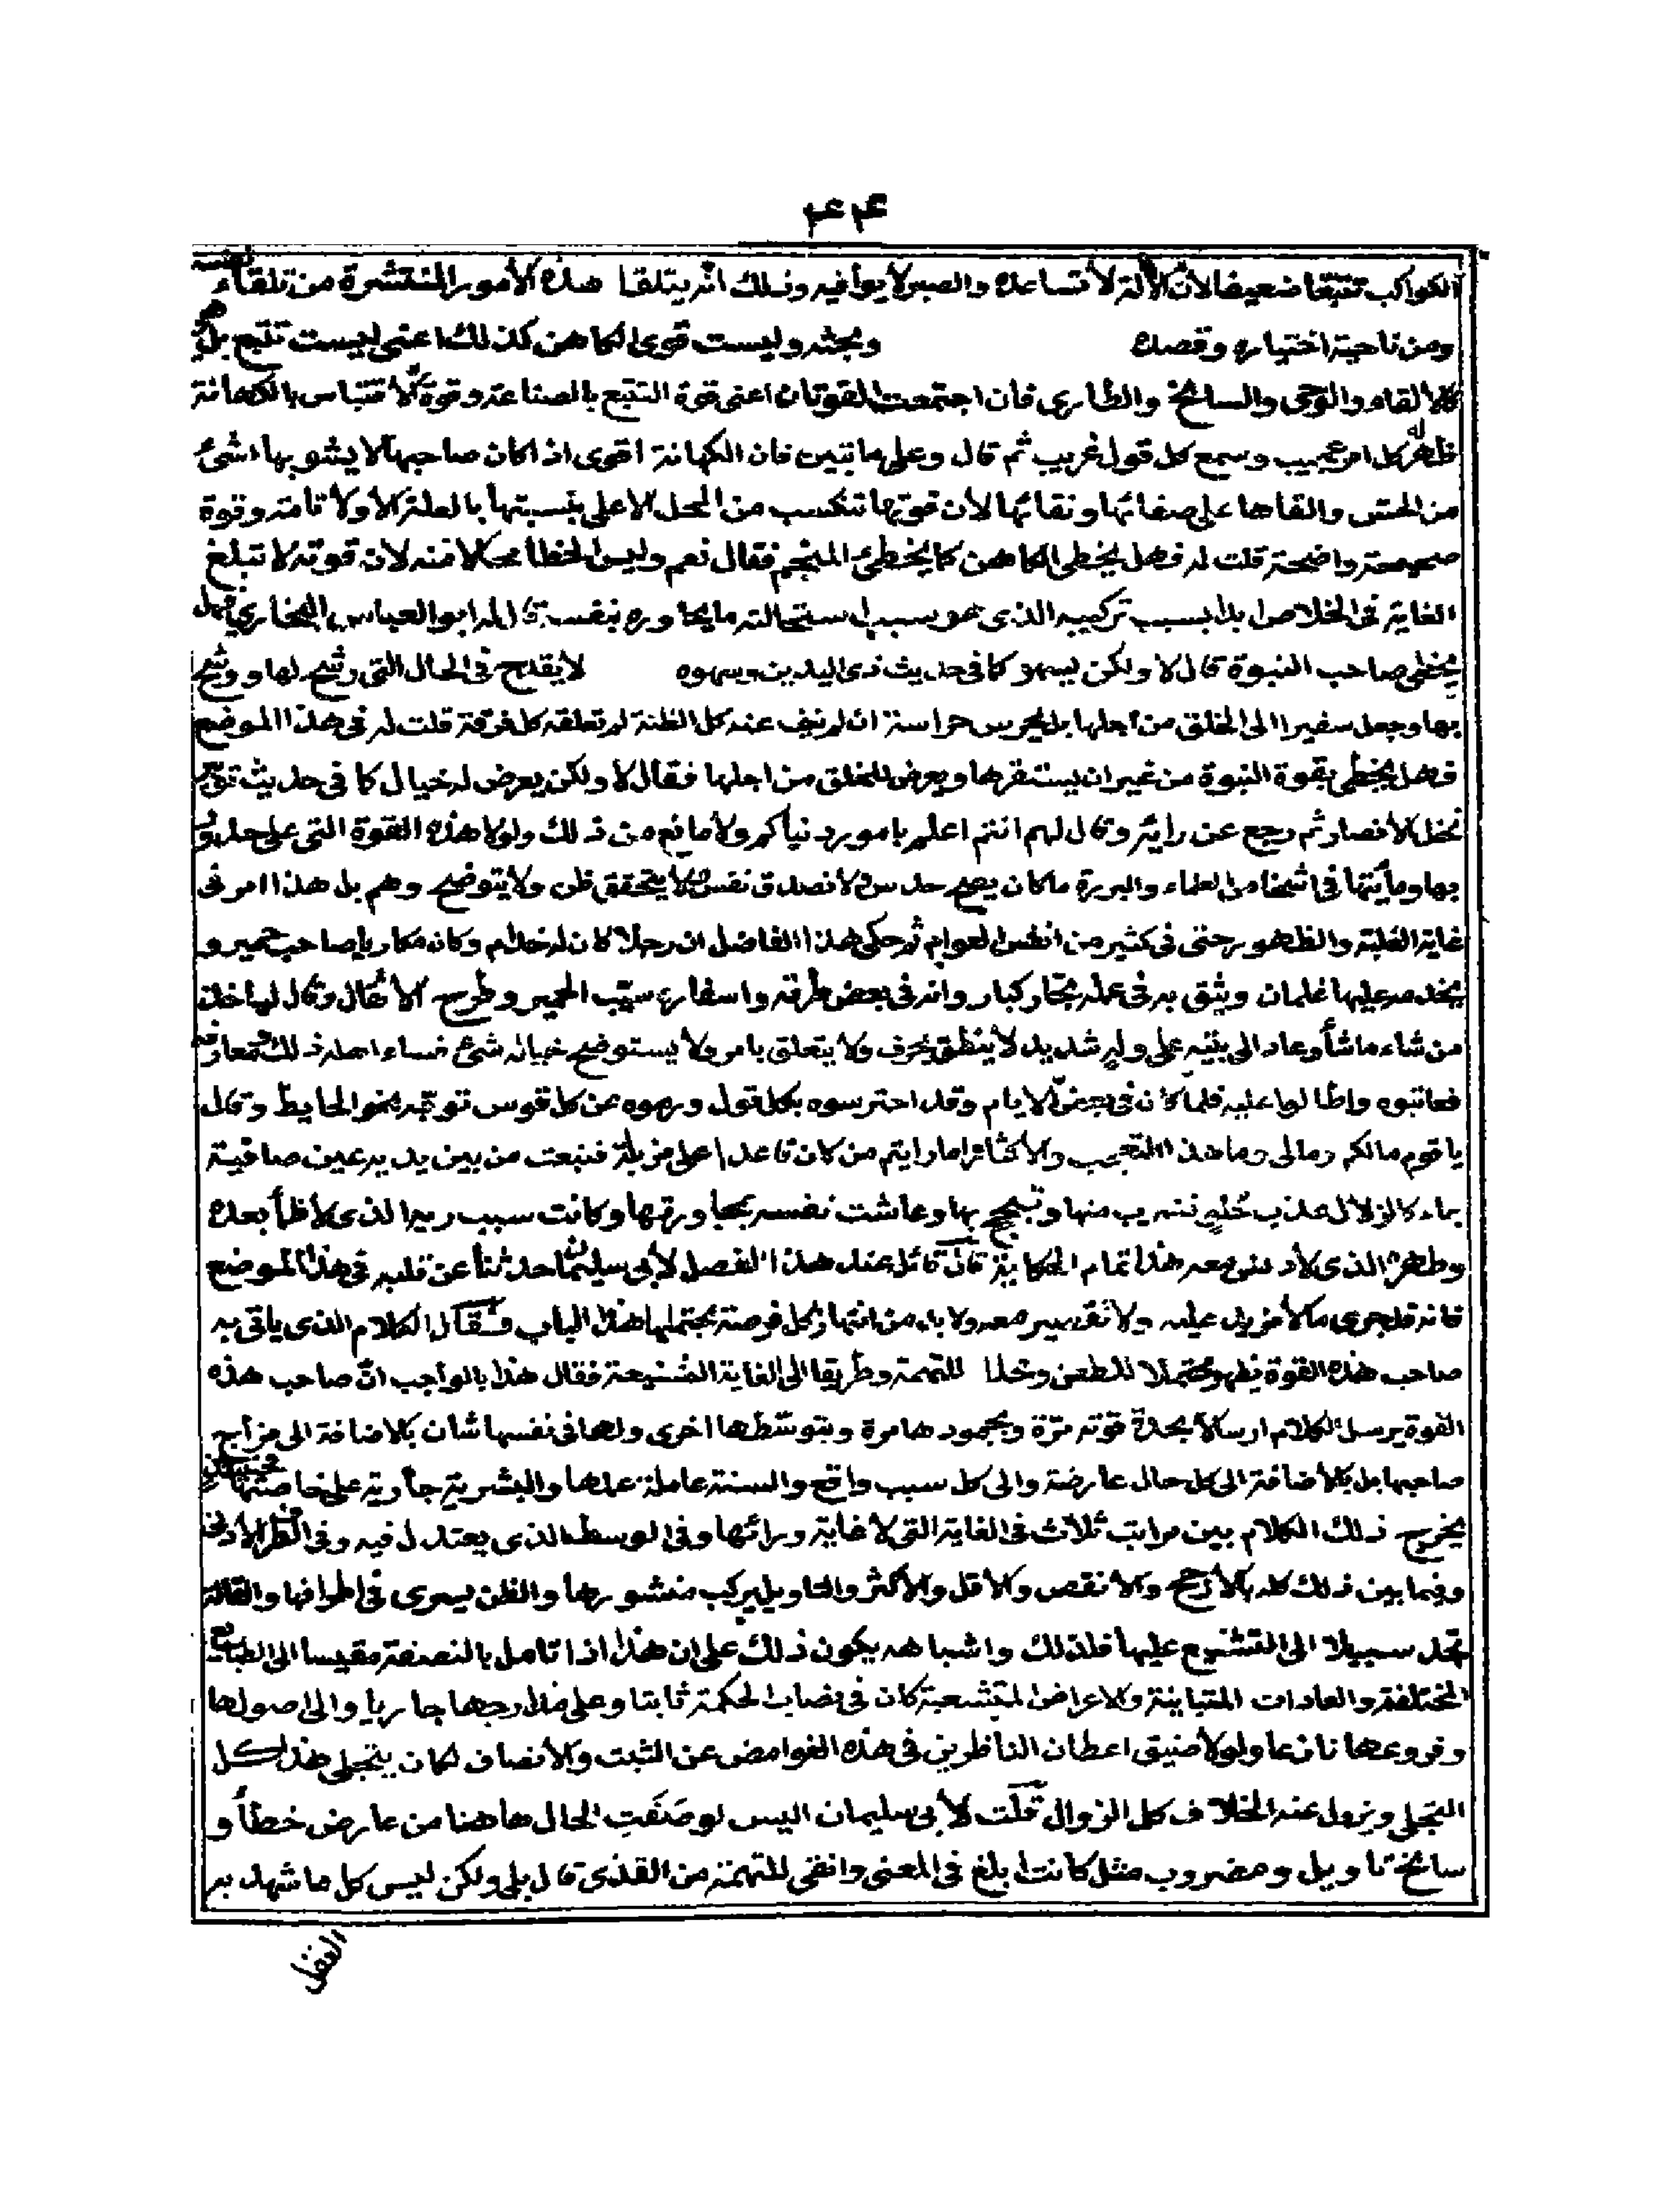 ٤٤
الكواكب تتبعا ضعيفا لان الآلة لا تساعده والصبر لا يوافيه وذلك انه يتلقا هذه الأمور المنتشرة من تلقاء نفسه
ومن ناحية اختياره وقصده وبحثه وليست قوى الكاهن كذلك اعنى ليست تتبع بل هى
كالالقاء والوحى والسانح والطارى فان اجتمعت القوتان اعنى قوة التتبع بالصناعة وقوة الاقتباس بالكهانة
ظهر له كل امر عجيب وسمع كل قول غريب ثم قال وعلى ما تبين فان الكهانة اقوى اذا كان صاحبها لا يشوبها شئ
من الحس والقاها على صفائها ونقائها لان قوتها تنكسب من المحل الاعلى بنسبتها بالعلة الاولا تامة وقوة
صحيحة واضحة قلت له فهل يخطى الكاهن كما يخطئ المنجم فقال نعم وليس الخطأ محالا منه لان قوته لا تبلغ
الغاية فى الخلاص بل بسبب تركيبه الذى هو سبب استحالته ما يحاوره بنفسه قال له ابو العباس البخاري فهل
يخطى صاحب النبوة قال لا ولكن يسهو كما فى حديث ذى اليدين وسهوه لا يقدح فى الحال التى رشح لها ووشح
بها وجعل سفيرا الى الخلق من اجلها بل يحرس حراسة ان لم تنف عنه كل الظنة لم تعلقه كل فرقة قلت له فى هذا الموضع
فهل يخطى بقوة النبوة من غير ان يستقرها ويعرض للخلق من اجلها فقال لا ولكن يعرض له خيال كما فى حديث تلقيح
نخل الانصار ثم رجع عن رايه وقال لهم انتم اعلم بامور دنياكم ولا مانع من ذلك ولولا هذه القوة التى على
بها وما يتها فى اشخاص العلماء والبررة ما كان يصح حدس ولا تصدق نفس ولا يتحقق ظن ولا يتوضح وهم بل هذا امر فى
غاية الغلبة والظهور حتى فى كثير من انفس العوام ثم حكى هذا الفاضل ان رجلا كان له خدام وكان مكاريا صاحب حمير و
يخدمه عليها غلمان ويثق به فى عمله تجار كبار وانه فى بعض طرقه واسفاره سيب الحمير وطرح الاثقال وقال لها خذ
من شاء ما شأ وعاد الى بيته على وله شديد لا ينطق بحرف ولا يتعلق بامر ولا يستوضح خياله شئ فساء اهله ذلك ومعارفه
فعاتبوه واطالوا عليه فلما كان فى بعض الايام وقد احترسوه بكل قول ورموه عن كل قوس توجه نحو الحايط وقال
يا قوم مالكم ومالى وما هذا التعجب والاكثار اما رايتم من كان قاعدا على مزبلة فنبعت من بين يديه عين صافية
بماء كالزلال عذب خلو فشرب منها وتبجح بها وعاشت نفسه بمجاورتها وكانت سبب ريه الذى لا ظأ بعده
وطهره الذى لا دنس معه هذا تمام الحكاية قال قائل عند هذا الفصل لأبى سليمان حدثنا عن قلبه فى هذا الموضع
فانه قد جرى ما لا مزيد عليه ولا تقصير معه ولا بد من انتهاز كل فرصة يحتملها هذا الباب فقال الكلام الذى ياتى به
صاحب هذه القوة نظير ومحتملا للطعن وخللا للتهمة وطريقا الى الغاية الشنيعة فقال هذا بالواجب ان صاحب هذه
القوة يرسل الكلام ارسالا بحدة قوته مرة وبجمودها مرة وبتوسطها اخرى ولها فى نفسها شان بالاضافة الى مزاج
صاحبها بل بالاضافة الى كل حال عارضة والى كل سبب واقع والسنة عاملة عملها والبشرية جارية على خاصتها فحينئذ
يخرج ذلك الكلام بين مراتب ثلاث فى الغاية التى لا غاية ورائها وفى الوسط الذى يعتدل فيه وفى الطرف الادنى
وفيما بين ذلك كله بالأرجح والانقص والاقل والاكثر والتاويل يركب منشورها والظن يسرى فى اطرافها والقالة
تجد سبيلا الى التشنيع عليها فلذلك واشباهه يكون ذلك على ان هذا اذا تامل بالنصفة مقيسا الى الطبايع
المختلفة والعادات المتباينة والاعراض المتشعبة كان فى نصاب الحكمة ثابتا وعلى مدارجها جاريا والى اصولها
وفروعها نازعا ولولا ضيق اعطان الناظرين فى هذه الغوامض عن الثبت والانصاف لكان يتجلى هذا كل
التجلى ويزول عنه الخلاف كل الزوال قلت لأبى سليمان اليس لو صفت الحال هاهنا من عارض خطأ و
سانح تاويل ومضروب مثل كانت ابلغ فى المعنى وانفى للتهمة من القذى قال بلى ولكن ليس كل ما شهد به
العقل